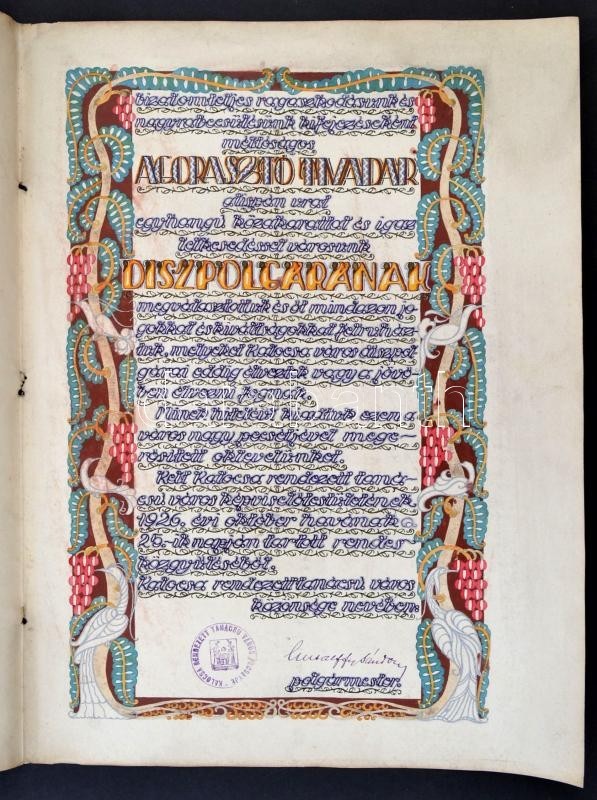 bizalomteljes ragaszkodásunk és
nagyrabecsülésünk kifejezéseként
méltóságos
AGORASZTÓ TIVADAR
alispán urat
egyhangú közakarattal és igaz
lelkesedéssel városunk
DISZPOLGÁRÁNAK
megválasztottuk és őt mindazon jo-
gokkal és kiváltságokkal felruház-
tuk, melyeket Kalocsa város díszpol-
gárai eddig élveztek vagy a jövő-
ben élvezni fognak.
Minek hiteléül kiadtuk ezen a
város nagy pecsétjével mege-
rősített oklevelünket.
Kelt Kalocsa rendezett taná-
csú város képviselőtestületének
1926. évi október havának
26.-ik napján tartott rendes
közgyűléséből.
Kalocsa rendezett tanácsú város
közönsége nevében:
KALOCSA RENDEZETT TANÁCSÚ VÁROS PECSÉTJE
Sándor
polgármester.